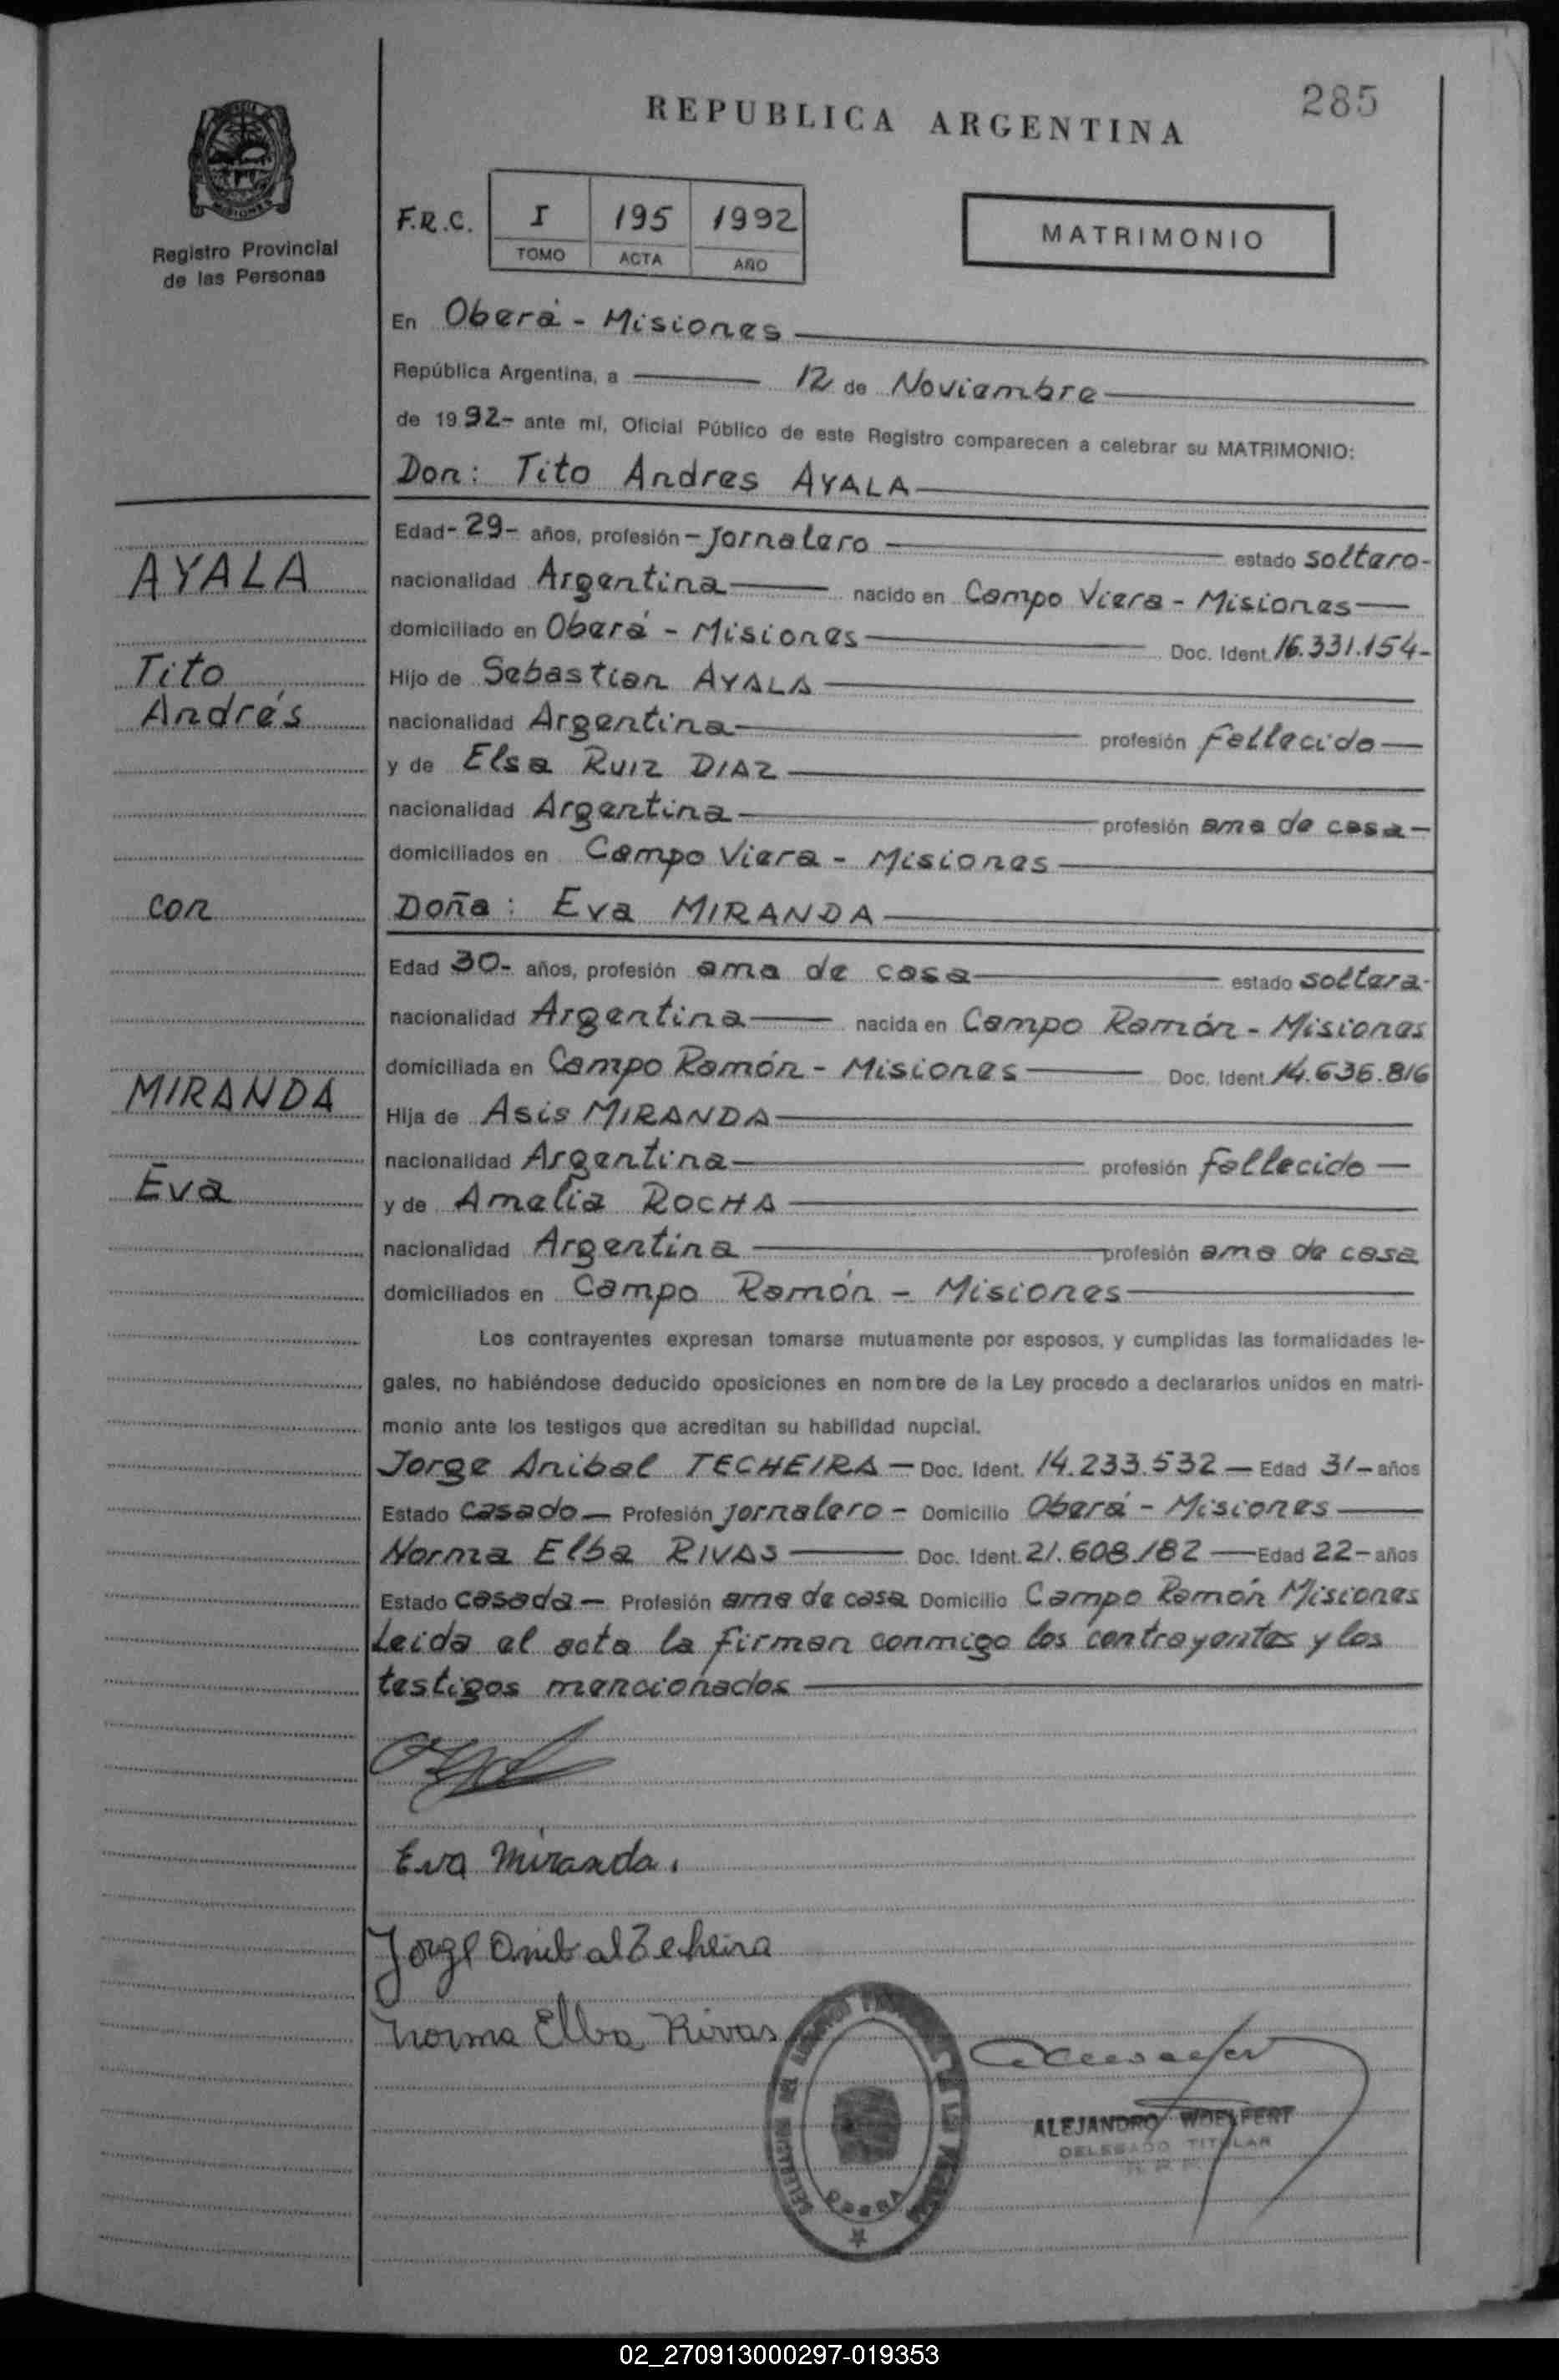 285
REPUBLICA ARGENTINA
MISIONES
Registro Provincial
de las Personas
F.R.C. I 195 1992
TOMO ACTA AÑO
MATRIMONIO
En Oberá - Misiones
República Argentina, a 12 de Noviembre
de 1992- ante mí, Oficial Público de este Registro comparecen a celebrar su MATRIMONIO:
Don: Tito Andres AYALA
Edad- 29- años, profesión - Jornalero estado soltero-
AYALA
nacionalidad Argentina nacido en Campo Viera - Misiones
domiciliado en Oberá - Misiones Doc. Ident. 16.331.154-
Tito
Hijo de Sebastian AYALA
Andrés
nacionalidad Argentina profesión fallecido
y de Elsa RUIZ DIAZ
nacionalidad Argentina profesión ama de casa-
domiciliados en Campo Viera - Misiones
con
Doña: Eva MIRANDA
Edad 30- años, profesión ama de casa estado soltera-
nacionalidad Argentina nacida en Campo Ramón - Misiones
domiciliada en Campo Ramón - Misiones Doc. Ident. 14.636.816
MIRANDA
Hija de Asis MIRANDA
nacionalidad Argentina profesión fallecido
Eva
y de Amalia ROCHA
nacionalidad Argentina profesión ama de casa
domiciliados en Campo Ramón - Misiones
Los contrayentes expresan tomarse mutuamente por esposos, y cumplidas las formalidades le-
gales, no habiéndose deducido oposiciones en nombre de la Ley procedo a declararlos unidos en matri-
monio ante los testigos que acreditan su habilidad nupcial.
Jorge Anibal TECHEIRA - Doc. Ident. 14.233.532 - Edad 31- años
Estado casado - Profesión jornalero - Domicilio Oberá - Misiones
Norma Elba RIVAS Doc. Ident. 21.608.182 - Edad 22- años
Estado casada - Profesión ama de casa Domicilio Campo Ramón Misiones
Leida el acta la firman conmigo los contrayentes y los
testigos mencionados
Eva Miranda.
Jorge Anibal Techeira
Norma Elba Rivas
ALEJANDRO WOELFERT
DELEGADO TITULAR
OBERA
02_270913000297-019353